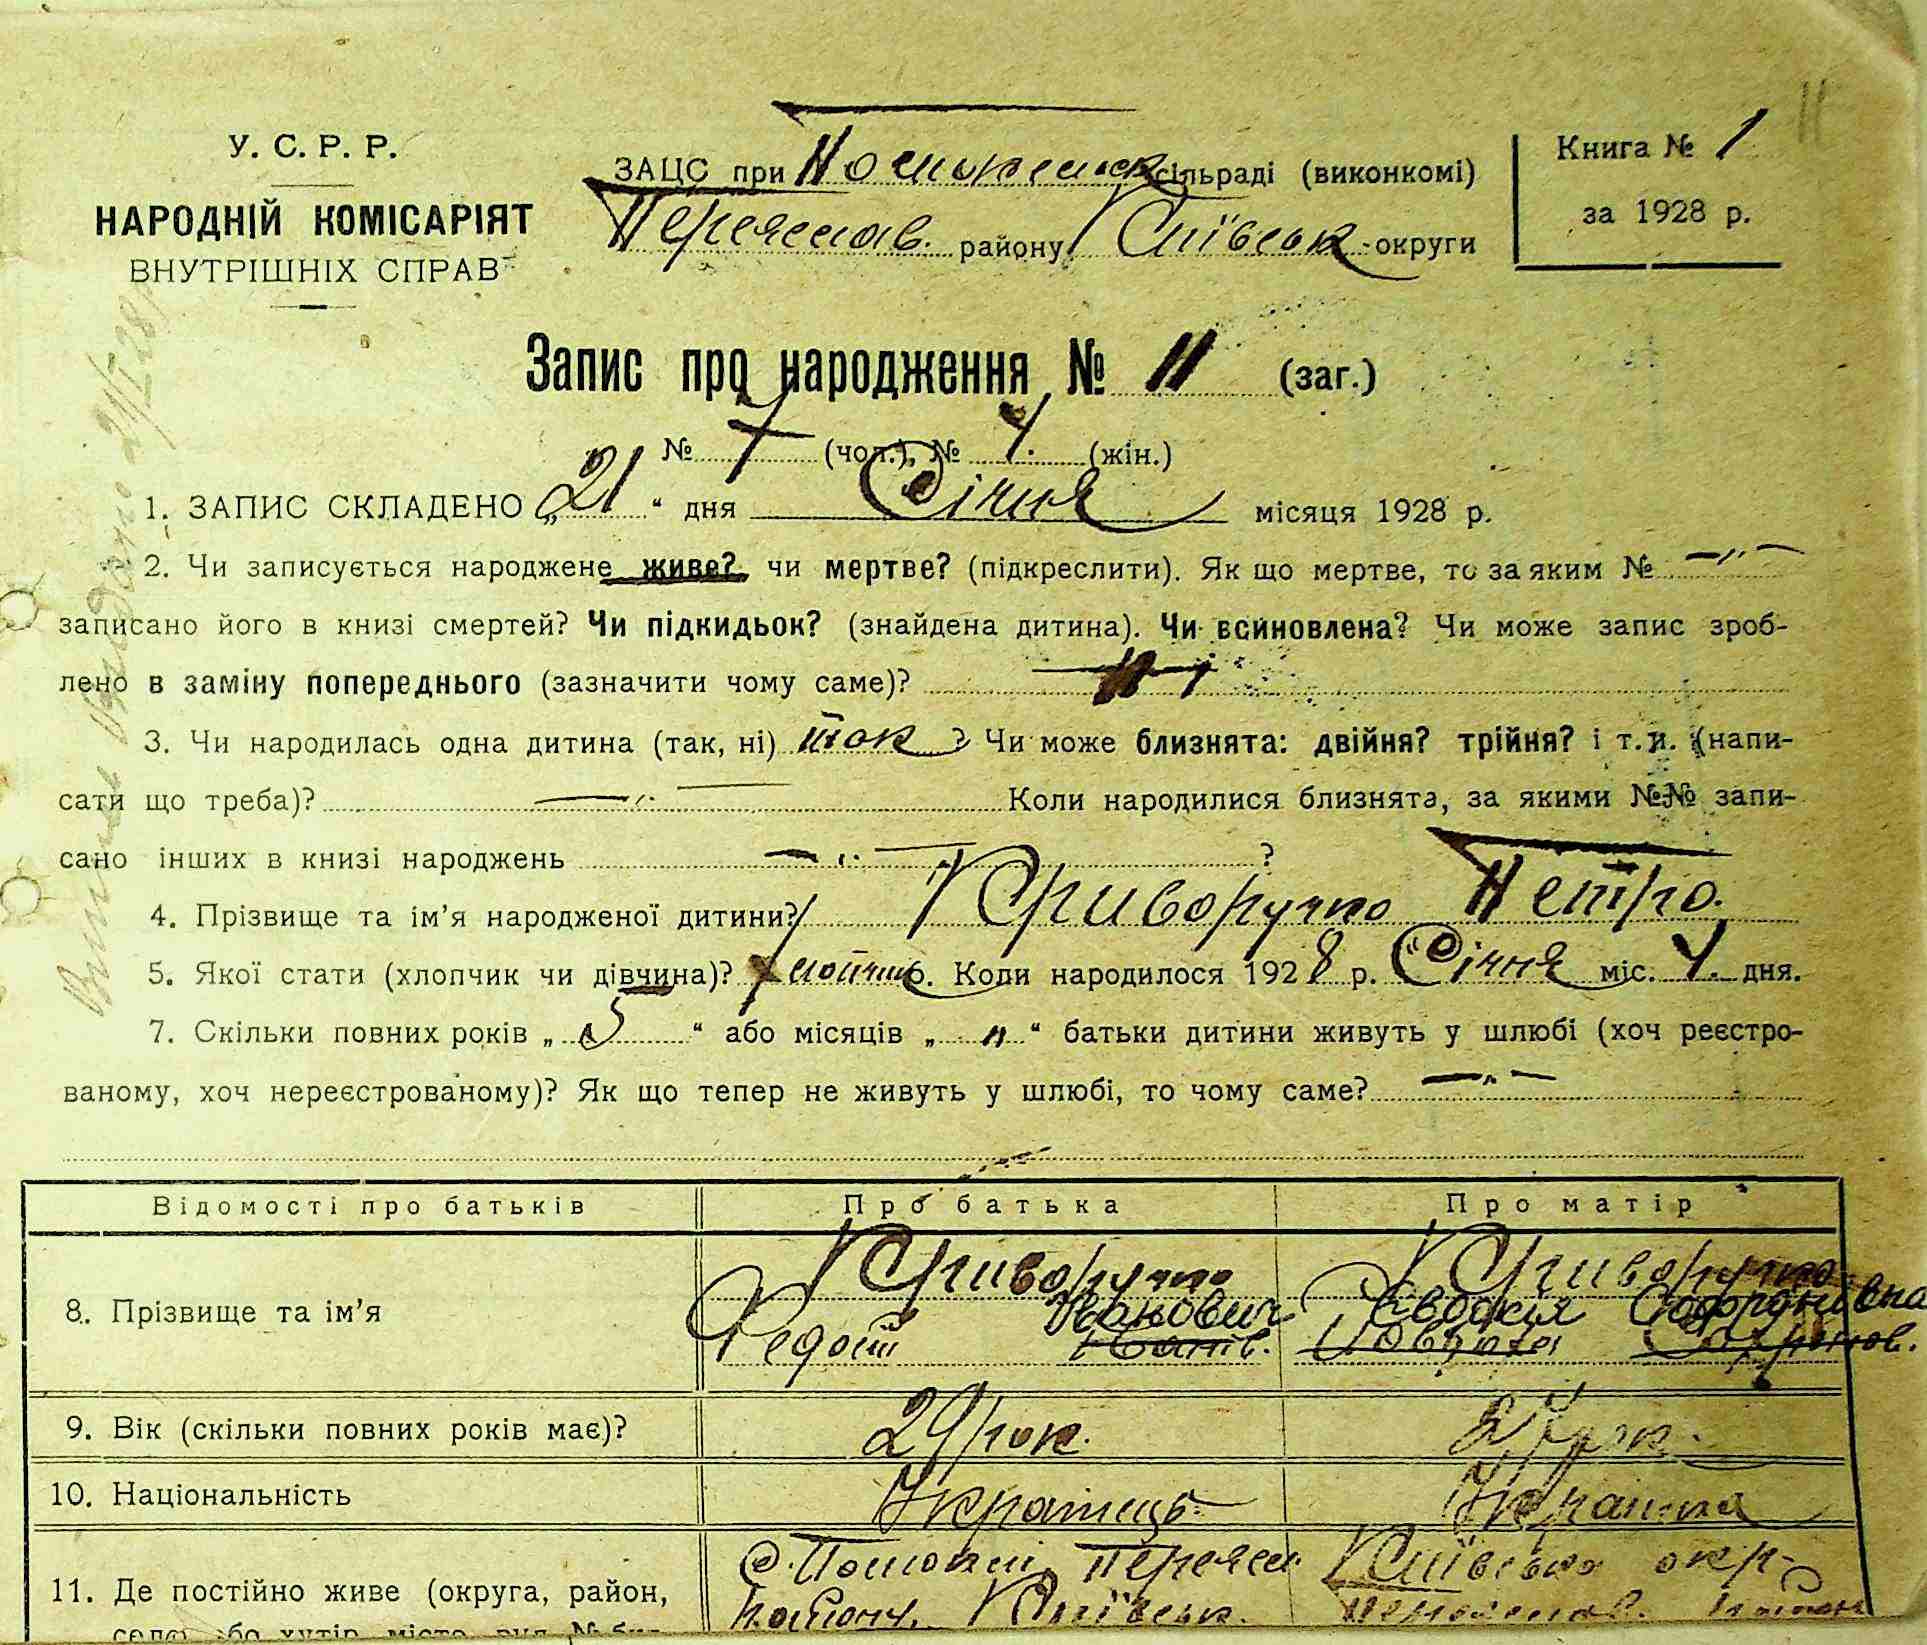 11
У. С. Р. Р.
НАРОДНІЙ КОМІСАРІЯТ
ВНУТРІШНІХ СПРАВ
ЗАЦС при сільраді (виконкомі)
Переяслав. району Київськ округи
Книга № 1
за 1928 р.
Запис про народження № 11 (заг.)
№ 7 (чол.), № 4. (жін.)
1. ЗАПИС СКЛАДЕНО „21“ дня Січня місяця 1928 р.
2. Чи записується народжене живе? чи мертве? (підкреслити). Як що мертве, то за яким № —"—
записано його в книзі смертей? Чи підкидьок? (знайдена дитина). Чи всиновлена? Чи може запис зроб-
лено в заміну попереднього (зазначити чому саме)?
3. Чи народилась одна дитина (так, ні) так? Чи може близнята: двійня? трійня? і т. и. (напи-
сати що треба)? —"— Коли народилися близнята, за якими №№ запи-
сано інших в книзі народжень —"— ?
4. Прізвище та ім’я народженої дитини? Криворучко Петро.
5. Якої стати (хлопчик чи дівчина)? хлопчик 6. Коли народилося 1928 р. Січня міс. 4. дня.
7. Скільки повних років „5“ або місяців „"“ батьки дитини живуть у шлюбі (хоч реєстро-
ваному, хоч нереєстрованому)? Як що тепер не живуть у шлюбі, то чому саме? —"—
Відомості про батьків Про батька Про матір
8. Прізвище та ім’я Криворучко Криворучко
Іванович Євдокія Софронівна
Федот
9. Вік (скільки повних років має)? 29 рок. 27 рок.
10. Національність Українець Українка
11. Де постійно живе (округа, район, Київська окр.
село або хутір, місто, вул. № Київськ.